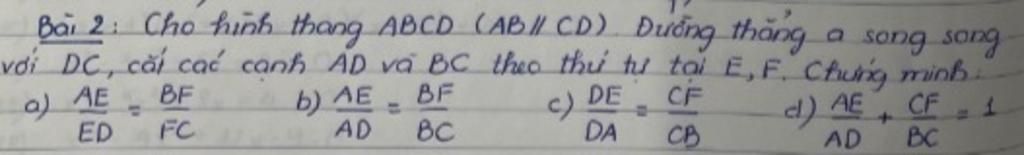 Bài 2: Cho hình thang ABCD (AB // CD) Đường thẳng a song song
với DC, cắt các cạnh AD và BC theo thứ tự tại E, F. Chứng minh:
a) AE/ED = BF/FC b) AE/AD = BF/BC c) DE/DA = CF/CB d) AE/AD + CF/BC = 1